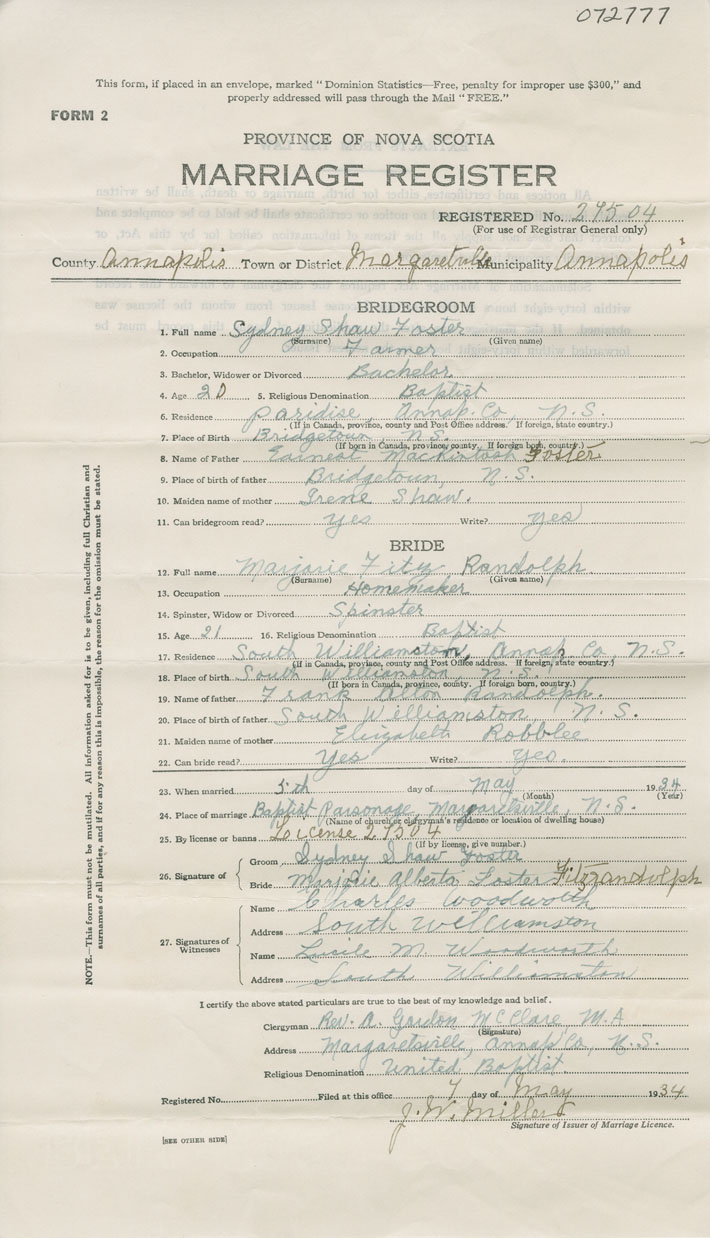 072777
This form, if placed in an envelope, marked "Dominion Statistics—Free, penalty for improper use $300," and
properly addressed will pass through the Mail "FREE."
FORM 2
PROVINCE OF NOVA SCOTIA
MARRIAGE REGISTER
REGISTERED No. 29504
(For use of Registrar General only)
County Annapolis Town or District Margaretville Municipality Annapolis
BRIDEGROOM
1. Full name Sydney Shaw Foster
(Surname) (Given name)
2. Occupation Farmer
3. Bachelor, Widower or Divorced Bachelor
4. Age 20 5. Religious Denomination Baptist
6. Residence Paridise, Annap. Co, N.S.
(If in Canada, province, county and Post Office address. If foreign, state country.)
7. Place of Birth Bridgetown, N.S.
(If born in Canada, province, county. If foreign born, country.)
8. Name of Father Earnest MacKintosh Foster
9. Place of birth of father Bridgetown, N.S.
10. Maiden name of mother Irene Shaw.
11. Can bridegroom read? yes Write? yes
BRIDE
12. Full name Marjorie Fitz Randolph
(Surname) (Given name)
13. Occupation Homemaker
14. Spinster, Widow or Divorced Spinster
15. Age 21 16. Religious Denomination Baptist
17. Residence South Williamston, Annap Co, N.S.
(If in Canada, province, county and Post Office address. If foreign, state country.)
18. Place of birth South Williamston, N.S.
(If born in Canada, province, county. If foreign born, country.)
19. Name of father Frank Randolph.
20. Place of birth of father South Williamston, N.S.
21. Maiden name of mother Elizabeth Robblee
22. Can bride read? Yes Write? yes.
23. When married 5th day of May 1934
(Month) (Year)
24. Place of marriage Baptist Parsonage, Margaretsville, N.S.
(Name of church or clergyman's residence or location of dwelling house)
25. By license or banns License 29504
(If by license, give number.)
26. Signature of
Groom Sydney Shaw Foster
Bride Marjorie Alberta Foster Fitzrandolph
27. Signatures of Witnesses
Name Charles Woodworth
Address South Williamston
Name Lucile M. Woodworth
Address South Williamston
I certify the above stated particulars are true to the best of my knowledge and belief.
Clergyman Rev. A. Gordon McClare, M.A
(Signature)
Address Margaretsville, Annap Co, N.S.
Religious Denomination United Baptist.
Registered No. Filed at this office 7 day of May 1934
J. W. Miller
Signature of Issuer of Marriage Licence.
[SEE OTHER SIDE]
NOTE.—This form must not be mutilated. All information asked for is to be given, including full Christian and
surnames of all parties, and if for any reason this is impossible, the reason for the omission must be stated.